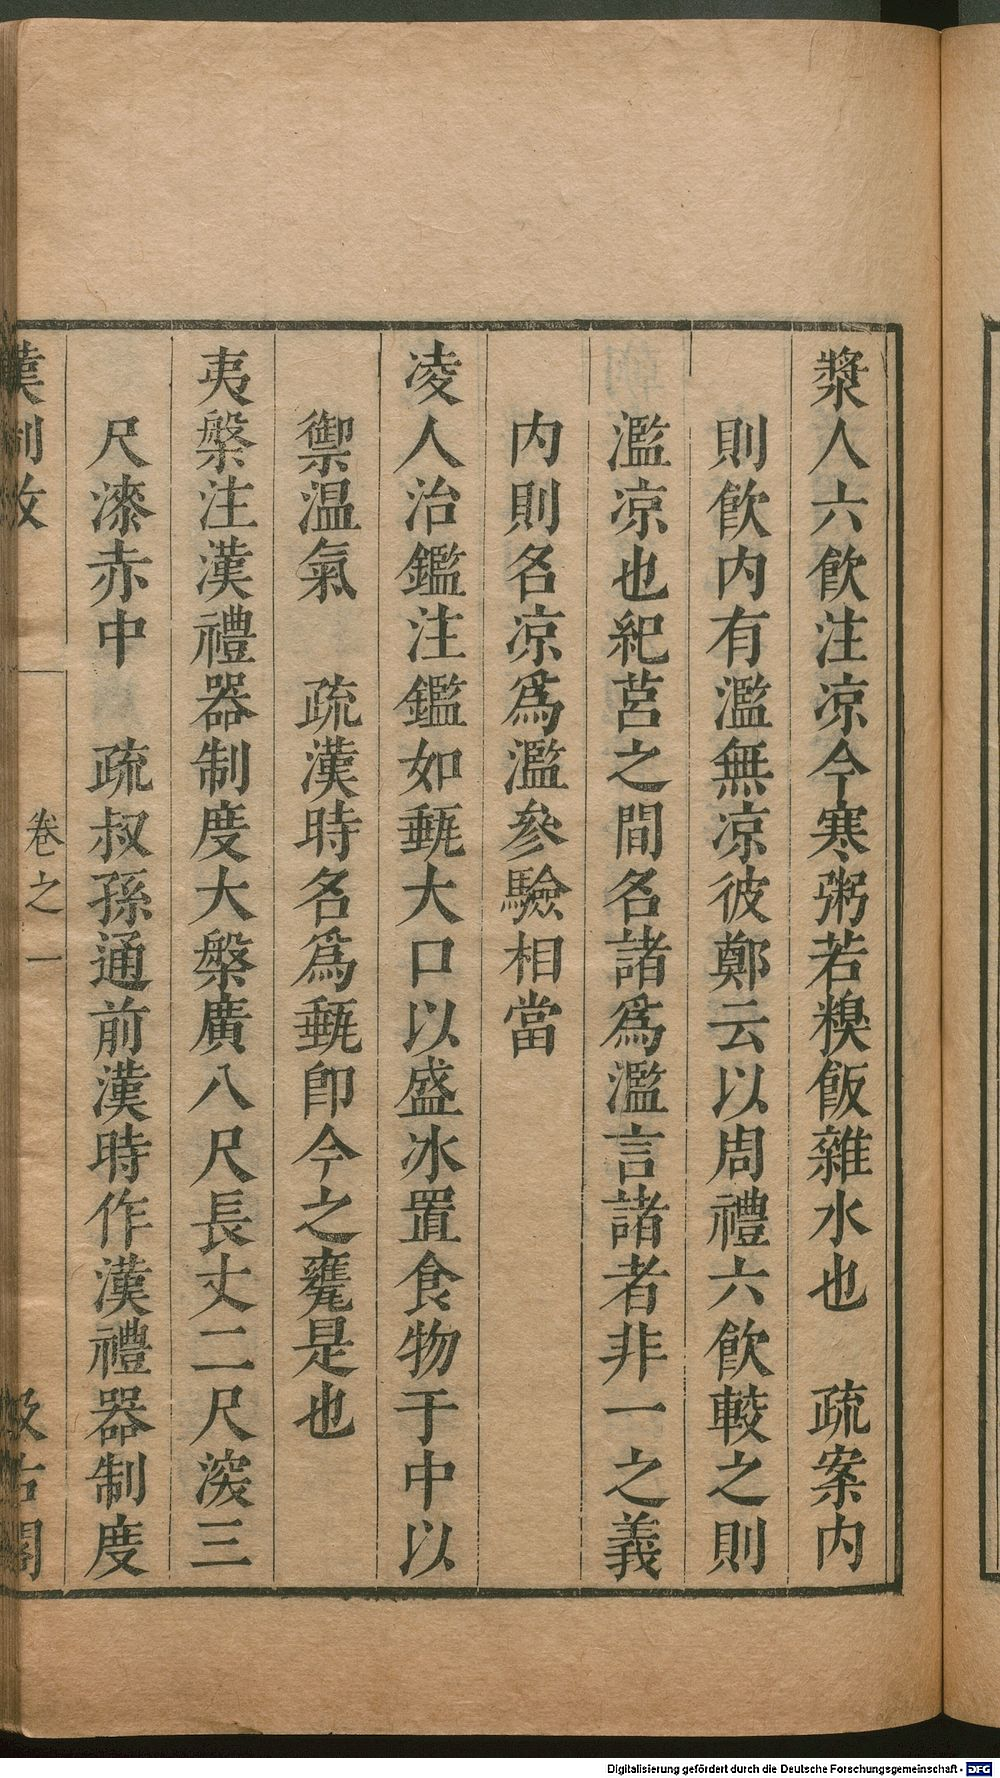 漿人六飲注凉今寒粥若糗飯雜水也　疏案内
則飲内有濫無凉彼鄭云以周禮六飲較之則
濫凉也紀莒之間名諸爲濫言諸者非一之義
内則名凉爲濫參驗相當
凌人治鑑注鑑如甀大口以盛冰置食物于中以
禦温氣　疏漢時名爲甀即今之甕是也
夷槃注漢禮器制度大槃廣八尺長丈二尺深三
尺漆赤中　疏叔孫通前漢時作漢禮器制度
漢制攷
卷之一
汲古閣
Digitalisierung gefördert durch die Deutsche Forschungsgemeinschaft - DFG